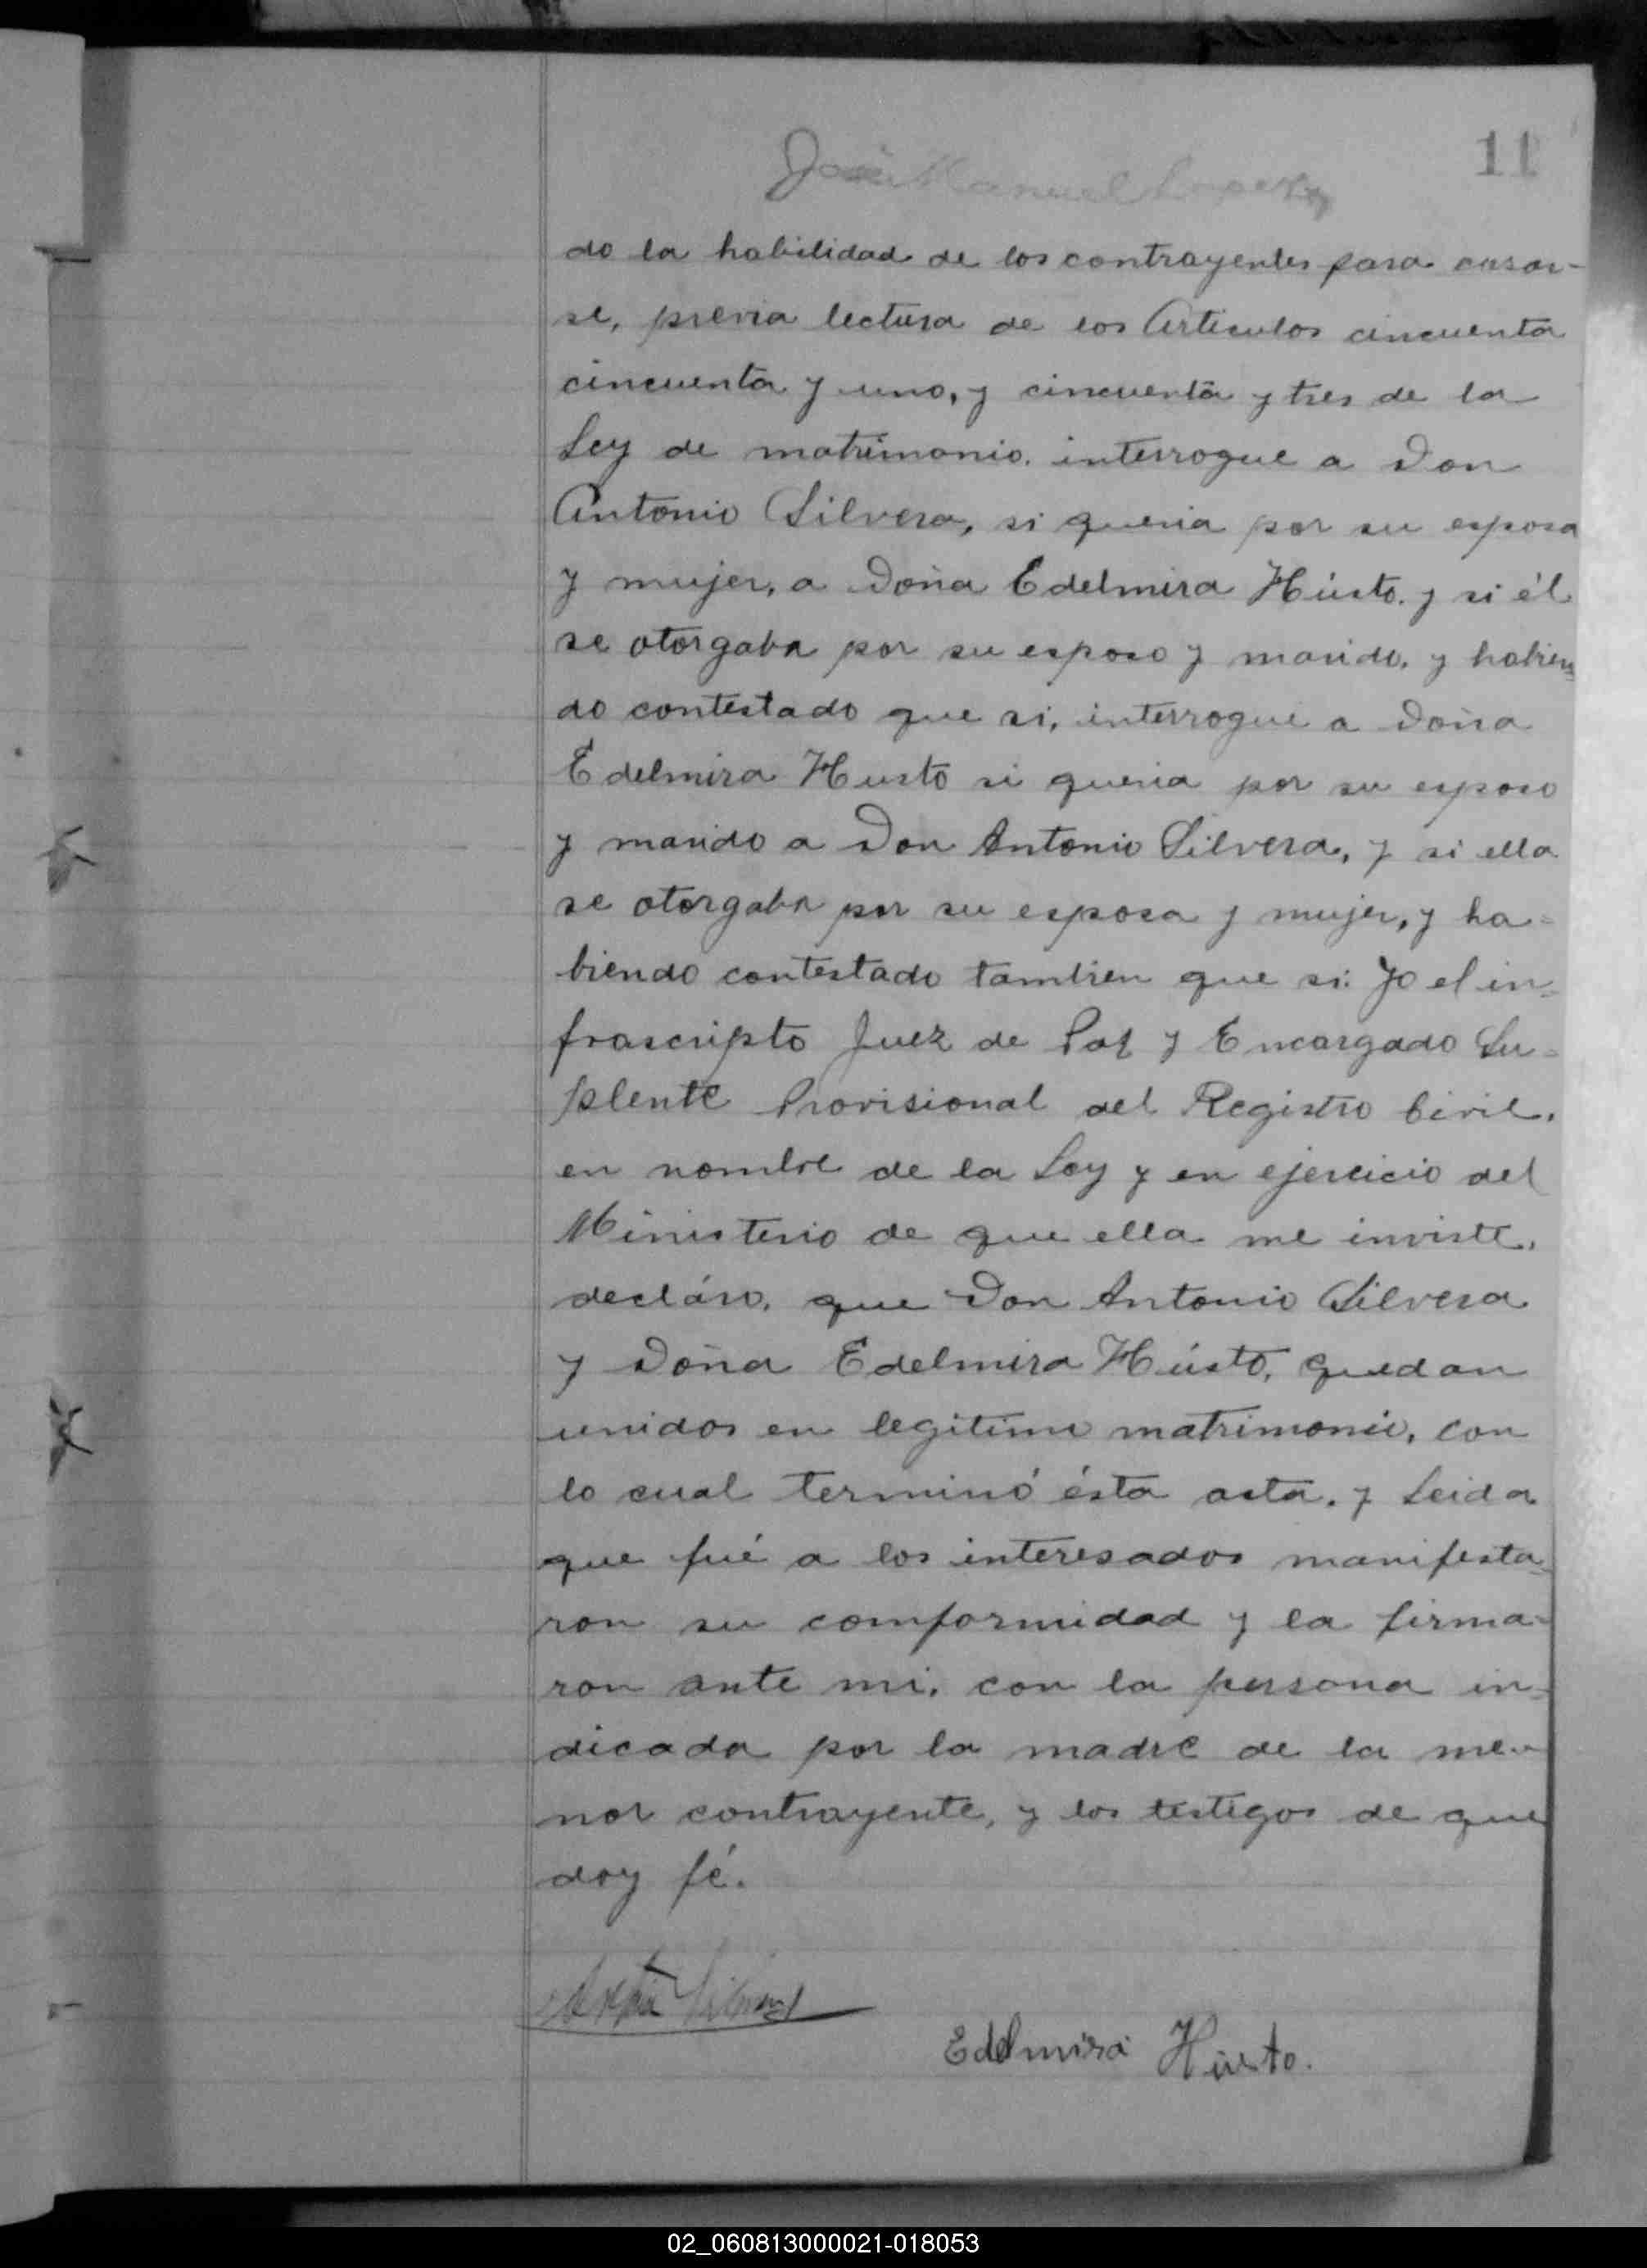 11
José Manuel Lopez
do la habilidad de los contrayentes para casar-
se, previa lectura de los Articulos cincuenta
cincuenta y uno, y cincuenta y tres de la
Ley de matrimonio. interrogue a Don
Antonio Silvera, si queria por su esposa
y mujer, a Doña Edelmira Hústo. y si él
se otorgaba por su esposo y marido, y habien=
do contestado que si, interrogue a Doña
Edelmira Husto si queria por su esposo
y marido a Don Antonio Silvera, y si ella
se otorgaba por su esposa y mujer, y ha=
biendo contestado tambien que si: Yo el in=
frascripto Juez de Paz y Encargado Su=
plente Provisional del Registro Civil,
en nombre de la Ley y en ejercicio del
Ministerio de que ella me inviste,
decláro, que Don Antonio Silvera
y Doña Edelmira Hústo, quedan
unidos en legitimo matrimonio, con
lo cual terminó ésta acta, y leida
que fué a los interesados manifesta=
ron su comformidad y la firma=
ron ante mi, con la persona in=
dicada por la madre de la me-
nor contrayente, y los testigos de que
doy fé.
Edelmira Hústo.
02_060813000021-018053